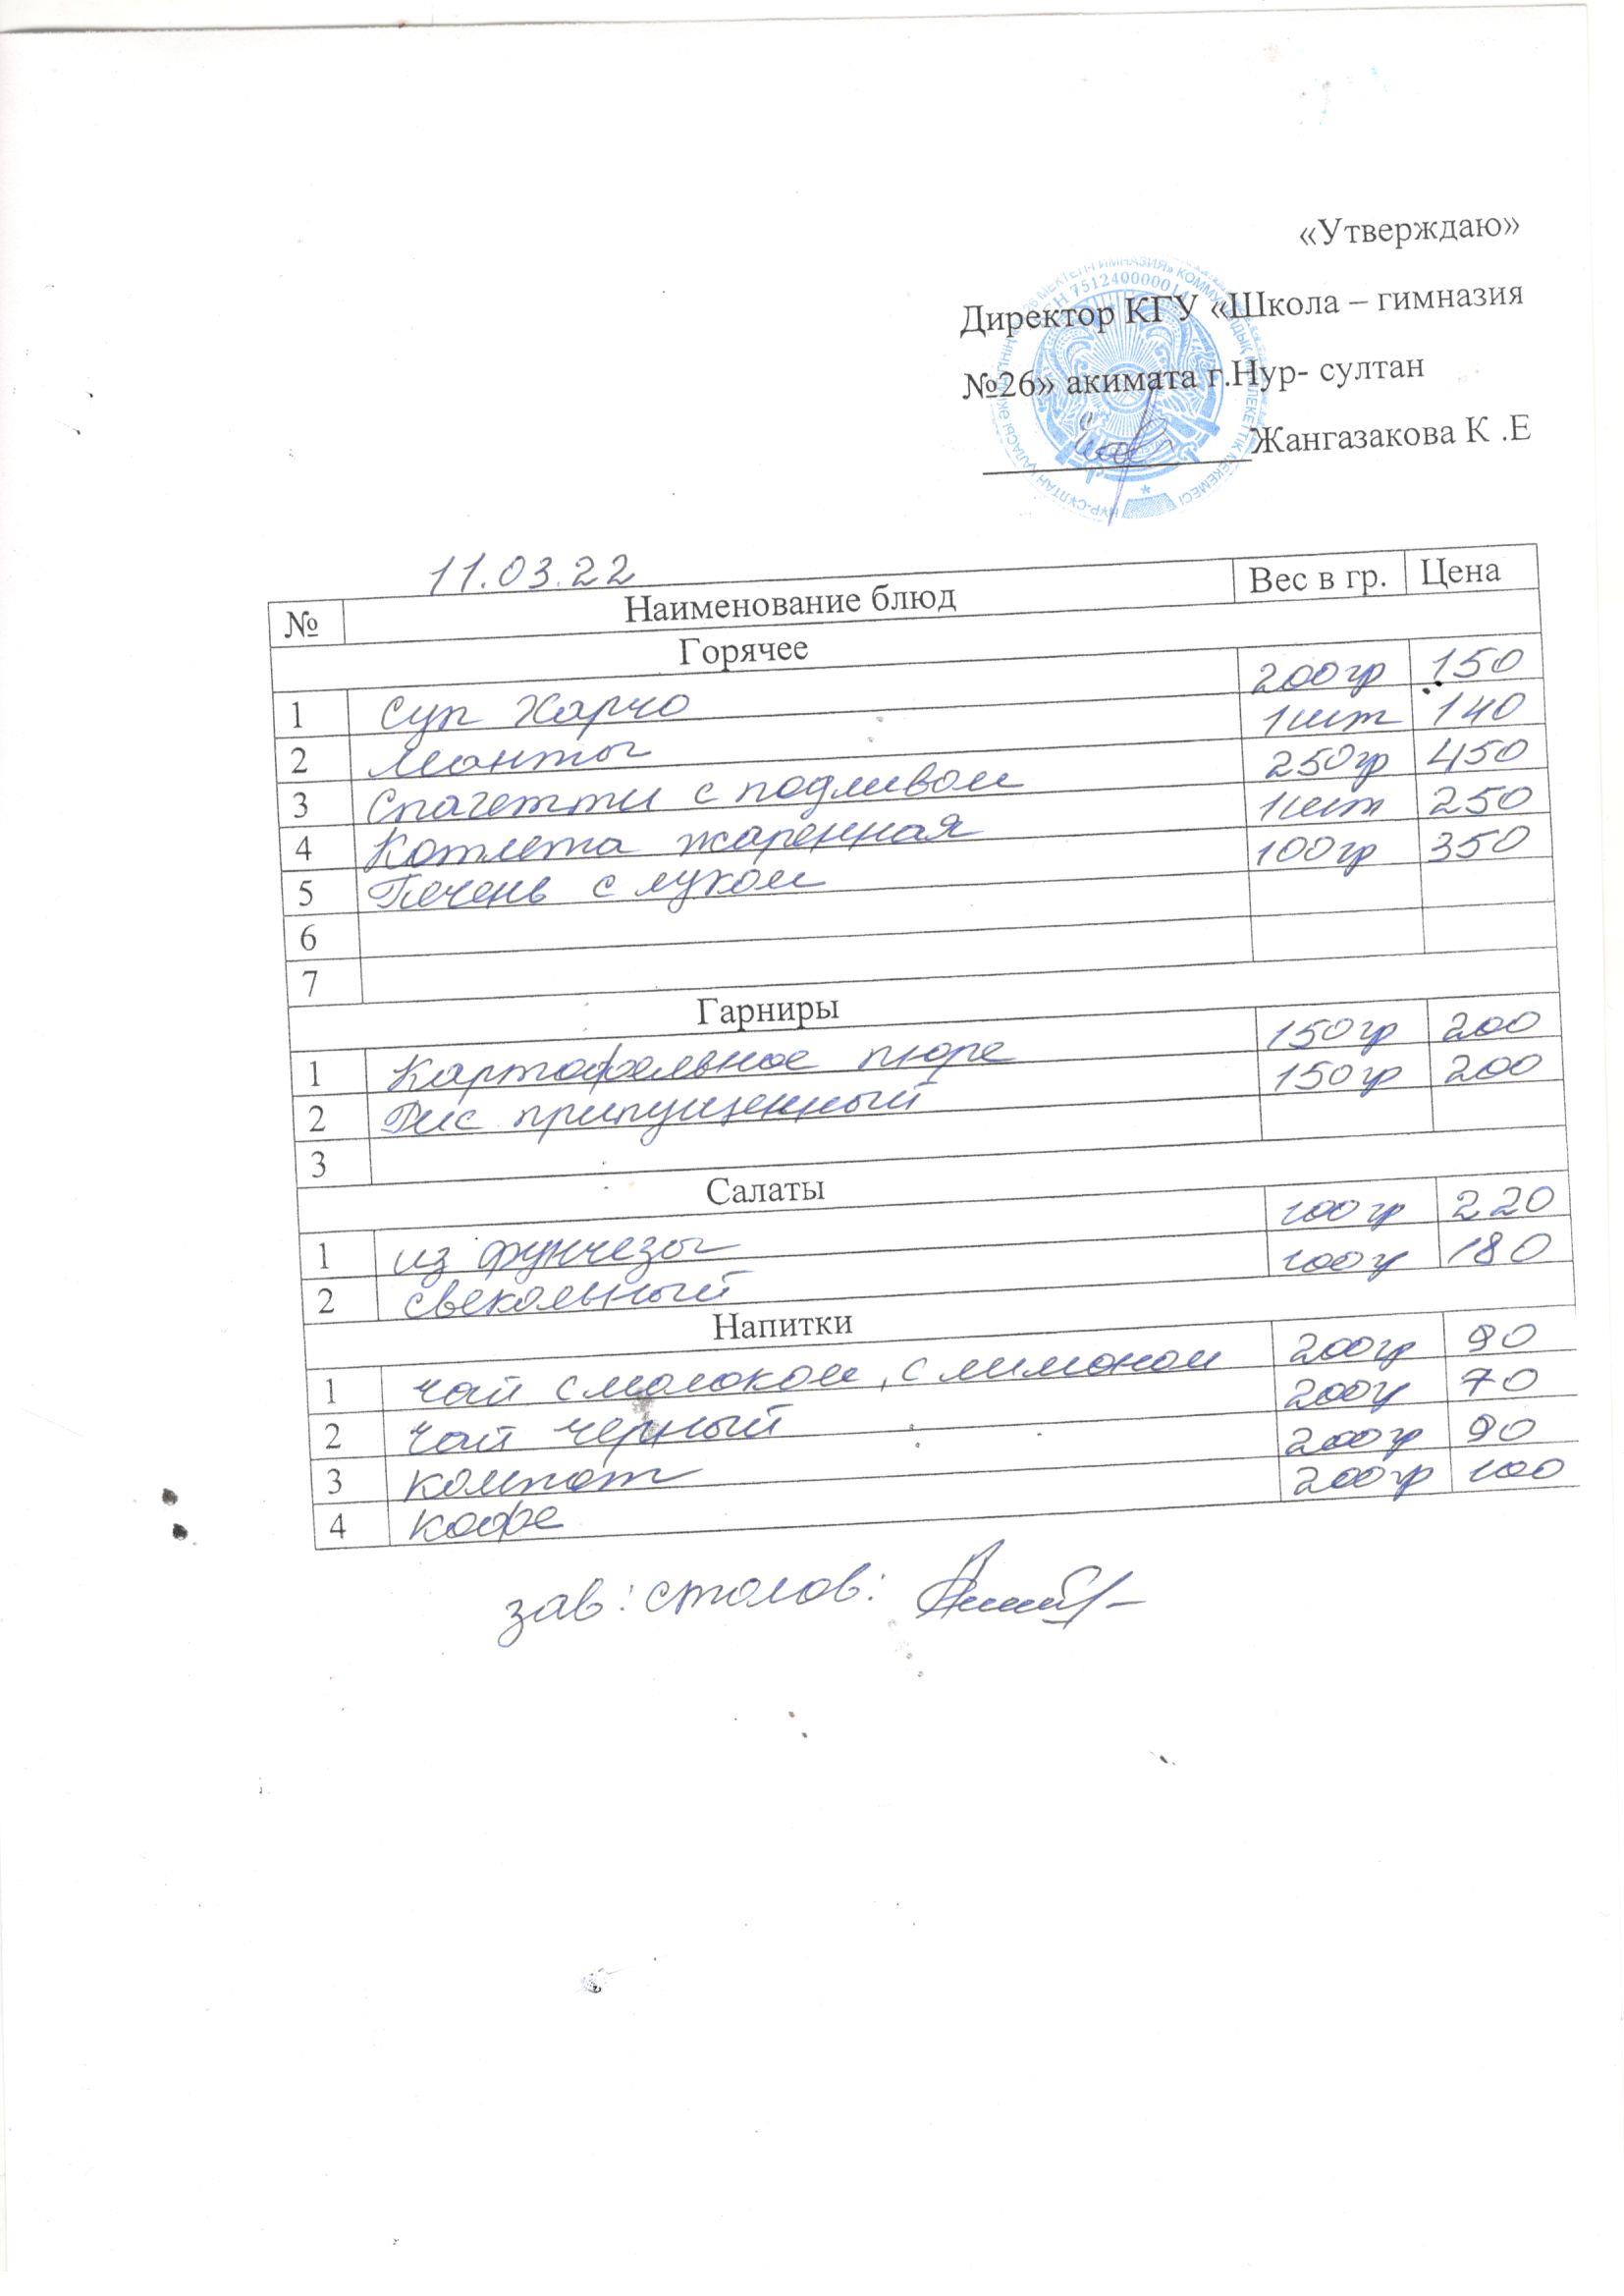 «Утверждаю»
Директор КГУ «Школа – гимназия
№26» акимата г.Нур- султан
Жангазакова К .Е
11.03.22
№ Наименование блюд Вес в гр. Цена
Горячее
1 Суп Харчо 200гр 150
2 Манты 1шт 140
3 Спагетти с подливом 250гр 450
4 Котлета жаренная 1шт 250
5 Печень с луком 100гр 350
6
7
Гарниры
1 Картофельное пюре 150гр 200
2 Рис припущенный 150гр 200
3
Салаты
1 из фунчезы 100гр 220
2 свекольный 100г 180
Напитки
1 чай с молоком, с лимоном 200гр 90
2 чай черный 200г 70
3 компот 200гр 90
4 кофе 200гр 100
зав: столов: